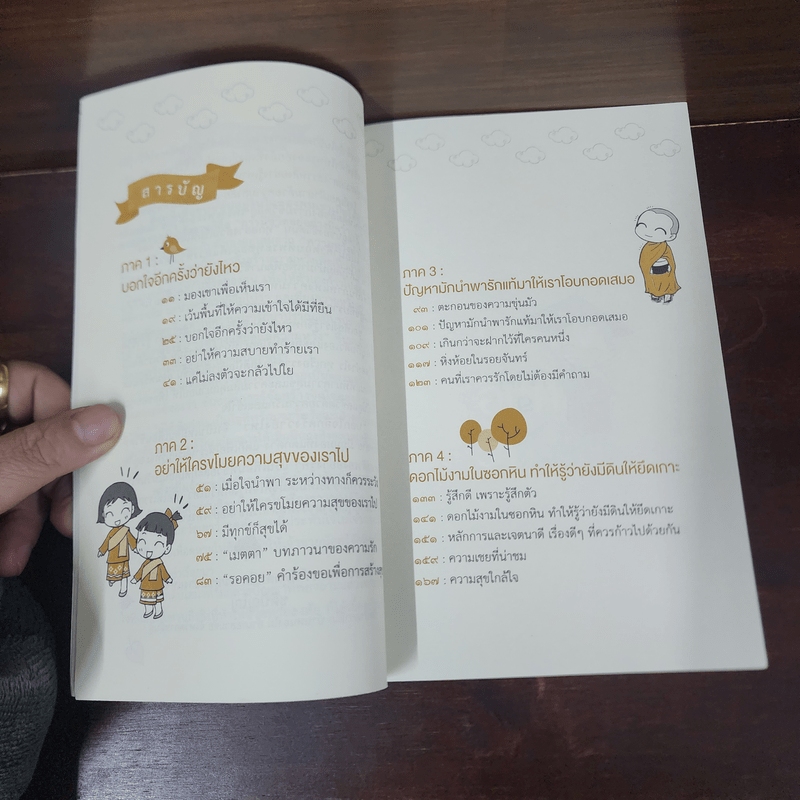 สารบัญ
ภาค 1 :
บอกใจอีกครั้งว่ายังไหว
๑๑ : มองเขาเพื่อเห็นเรา
๑๙ : เว้นพื้นที่ให้ความเข้าใจได้มีที่ยืน
๒๕ : บอกใจอีกครั้งว่ายังไหว
๓๓ : อย่าให้ความสบายทำร้ายเรา
๔๑ : แค่ไม่ลงตัวจะกลัวไปใย
ภาค 2 :
อย่าให้ใครขโมยความสุขของเราไป
๕๑ : เมื่อใจนำพา ระหว่างทางก็ควรระวัง
๕๙ : อย่าให้ใครขโมยความสุขของเราไป
๖๗ : มีทุกข์ก็สุขได้
๗๕ : “เมตตา” บทภาวนาของความรัก
๘๓ : “รอคอย” คำร้องขอเพื่อการสร้าง
ภาค 3 :
ปัญหามักนำพารักแท้มาให้เราโอบกอดเสมอ
๙๓ : ตะกอนของความขุ่นมัว
๑๐๑ : ปัญหามักนำพารักแท้มาให้เราโอบกอดเสมอ
๑๐๙ : เกินกว่าจะฝากไว้ที่ใครคนหนึ่ง
๑๑๗ : หิ่งห้อยในรอยจันทร์
๑๒๓ : คนที่เราควรรักโดยไม่ต้องมีคำถาม
ภาค 4 :
ดอกไม้งามในซอกหิน ทำให้รู้ว่ายังมีดินให้ยึดเกาะ
๑๓๓ : รู้สึกดี เพราะรู้สึกตัว
๑๔๑ : ดอกไม้งามในซอกหิน ทำให้รู้ว่ายังมีดินให้ยึดเกาะ
๑๕๑ : หลักการและเจตนาดี เรื่องดีๆ ที่ควรก้าวไปด้วยกัน
๑๕๙ : ความเชยที่น่าชม
๑๖๗ : ความสุขใกล้ใจ